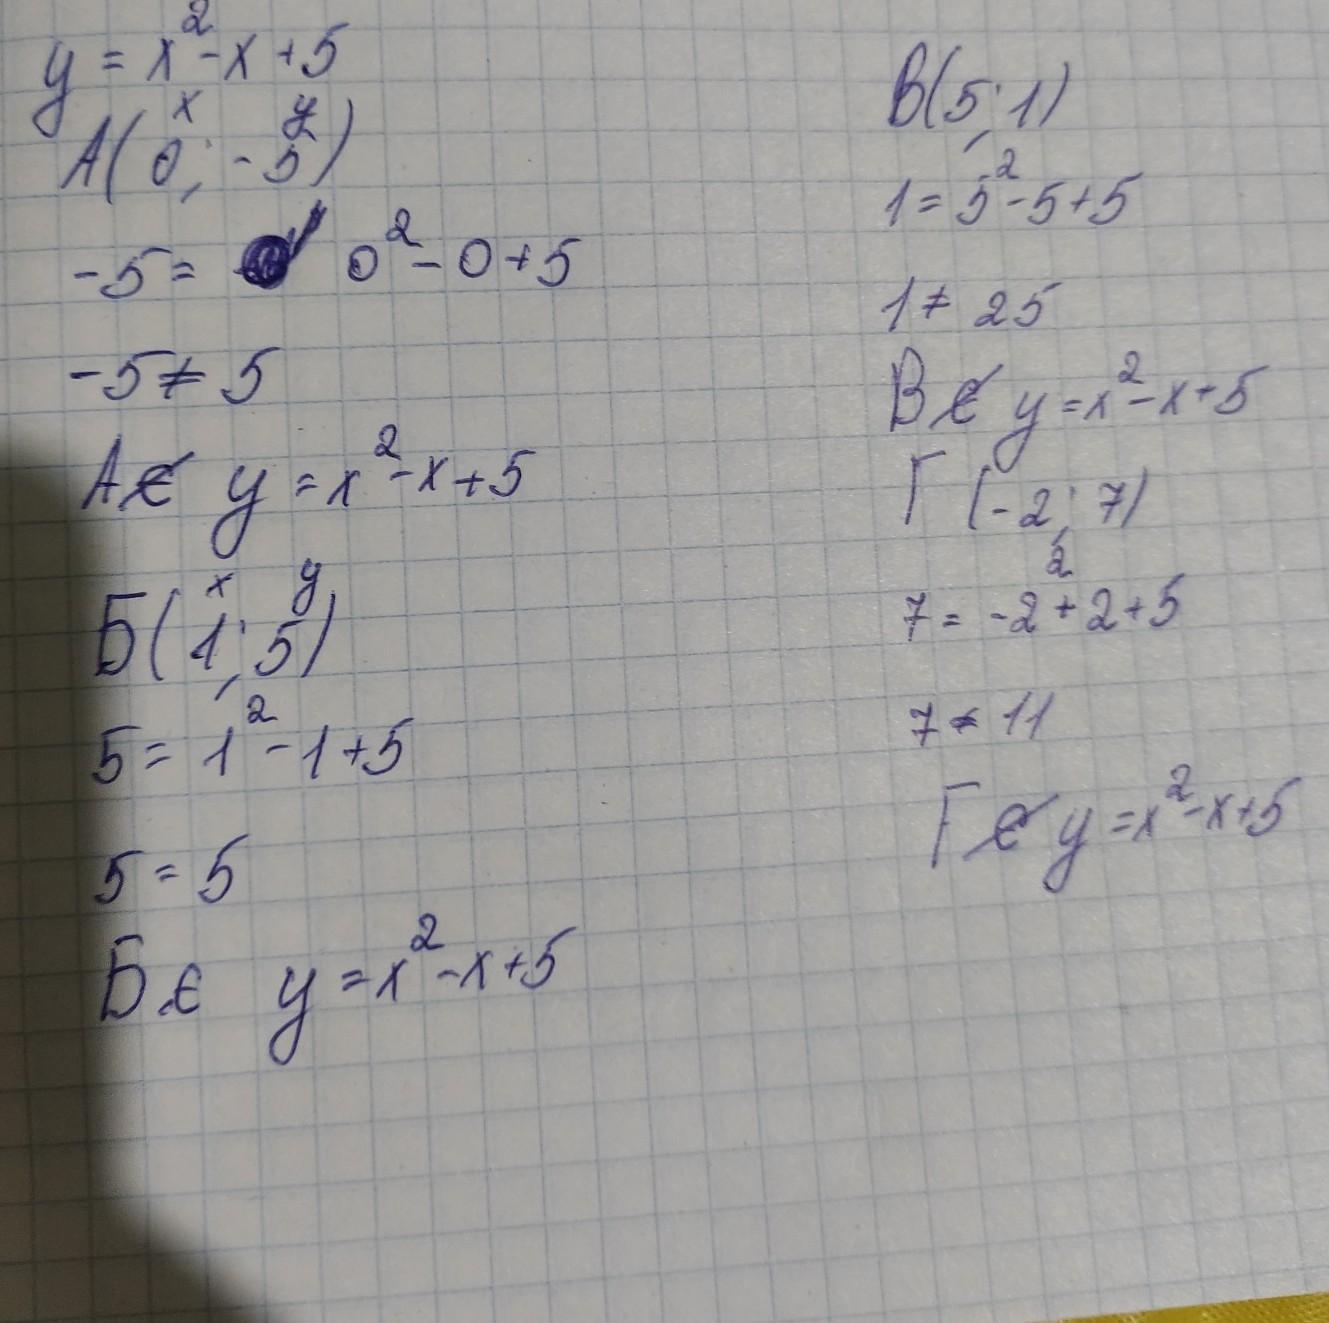 y = x² - x + 5
x y
A(0; -5)
-5 = 0² - 0 + 5
-5 ≠ 5
A ∉ y = x² - x + 5
x y
Б(1; 5)
5 = 1² - 1 + 5
5 = 5
Б ∈ y = x² - x + 5
В(5; 1)
1 = 5² - 5 + 5
1 ≠ 25
В ∉ y = x² - x + 5
Г(-2; 7)
7 = -2² + 2 + 5
7 ≠ 11
Г ∉ y = x² - x + 5